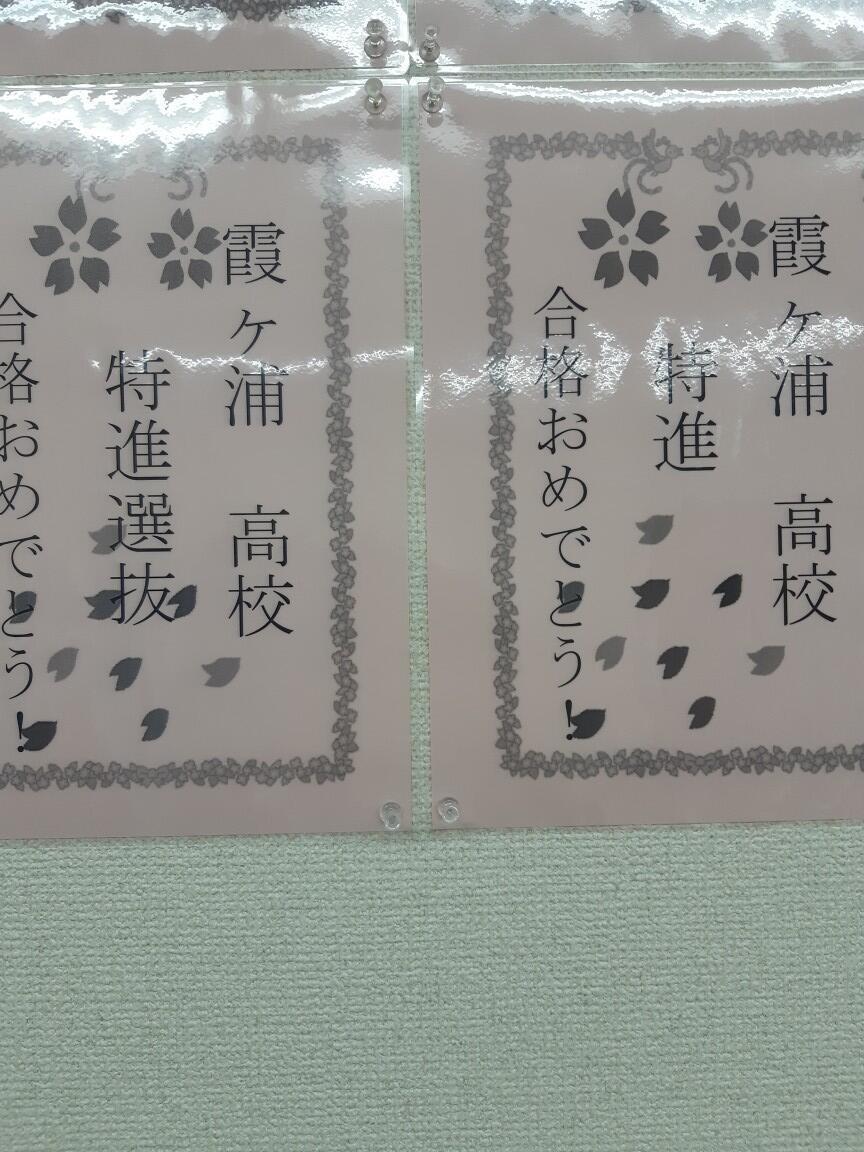 霞ヶ浦 高校
特進
合格おめでとう!
霞ヶ浦 高校
特進選抜
合格おめでとう!